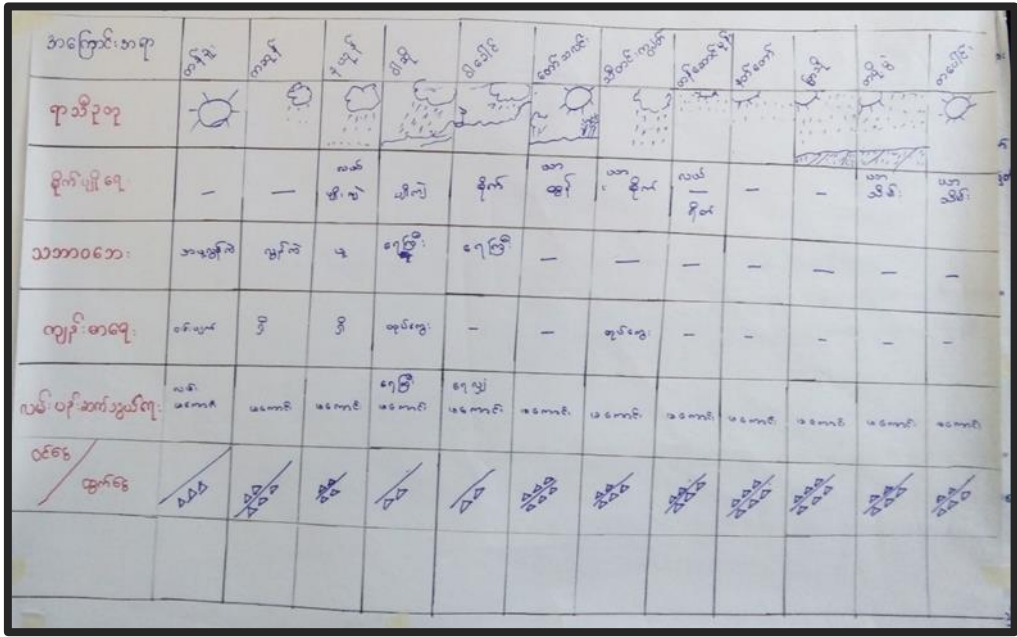 အကြောင်းအရာ တန်ခူး ကဆုန် နယုန် ဝါဆို ဝါခေါင် တော်သလင်း သီတင်းကျွတ် တန်ဆောင်မုန်း နတ်တော် ပြာသို တပို့တွဲ တပေါင်း
ရာသီဥတု
စိုက်ပျိုးရေး – – လယ် ပျိုးကြဲ စိုက် ယာ ယာ စိုက် လယ် – – ယာ ယာ
ထွန် ရိတ် သိမ်း သိမ်း
သဘာဝဘေး ရေကြီး ရေကြီး – – – – – – –
ကျန်းမာရေး တုပ်ကွေး – – တုပ်ကွေး – – – – –
လမ်းပန်းဆက်သွယ်ရေး လမ်း ရေကြီး
မကောင်း မကောင်း မကောင်း မကောင်း မကောင်း မကောင်း မကောင်း မကောင်း မကောင်း မကောင်း မကောင်း မကောင်း
ဝင်ငွေ
ထွက်ငွေ